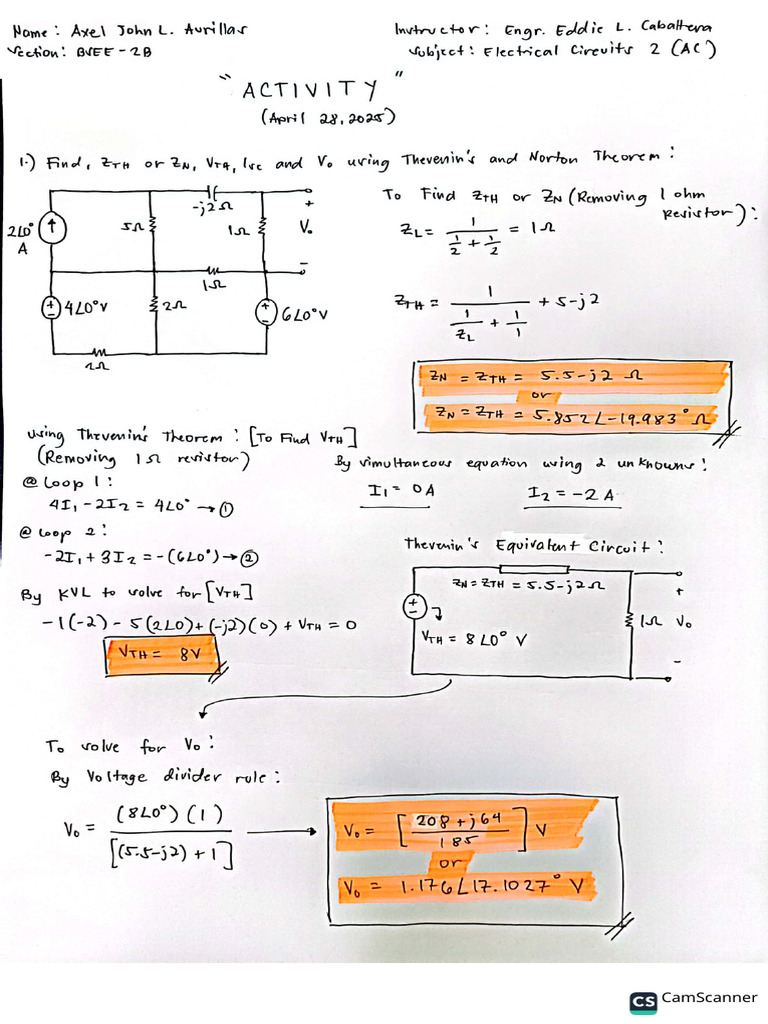 Name: Axel John L. Aurillas
Instructor: Engr. Eddie L. Caballera
Section: BSEE-2B
Subject: Electrical Circuits 2 (AC)
"ACTIVITY"
(April 28, 2025)
1.) Find, ZTH or ZN, VTH, Isc and Vo using Thevenin's and Norton Theorem:
2∠0° A
5Ω
-j2Ω
1Ω
+
Vo
-
1Ω
4∠0°V
2Ω
6∠0°V
2Ω
To Find ZTH or ZN (Removing 1 ohm
Resistor):
ZL = 1 / (1/2 + 1/2) = 1Ω
ZTH = 1 / (1/ZL + 1/1) + 5-j2
ZN = ZTH = 5.5-j2 Ω
or
ZN = ZTH = 5.852∠-19.983° Ω
Using Thevenin's Theorem: [To Find VTH]
(Removing 1Ω resistor)
@ Loop 1:
4I1 - 2I2 = 4∠0° → ①
@ Loop 2:
-2I1 + 3I2 = -(6∠0°) → ②
By KVL to solve for [VTH]
-1(-2) - 5(2∠0) + (-j2)(0) + VTH = 0
VTH = 8V
By simultaneous equation using 2 unknowns:
I1 = 0A
I2 = -2A
Thevenin's Equivalent Circuit:
ZN = ZTH = 5.5-j2Ω
VTH = 8∠0° V
1Ω
+
Vo
-
To solve for Vo:
By Voltage divider rule:
Vo = (8∠0°)(1) / [(5.5-j2)+1]
Vo = [208+j64 / 185] V
or
Vo = 1.176∠17.1027° V
CS CamScanner